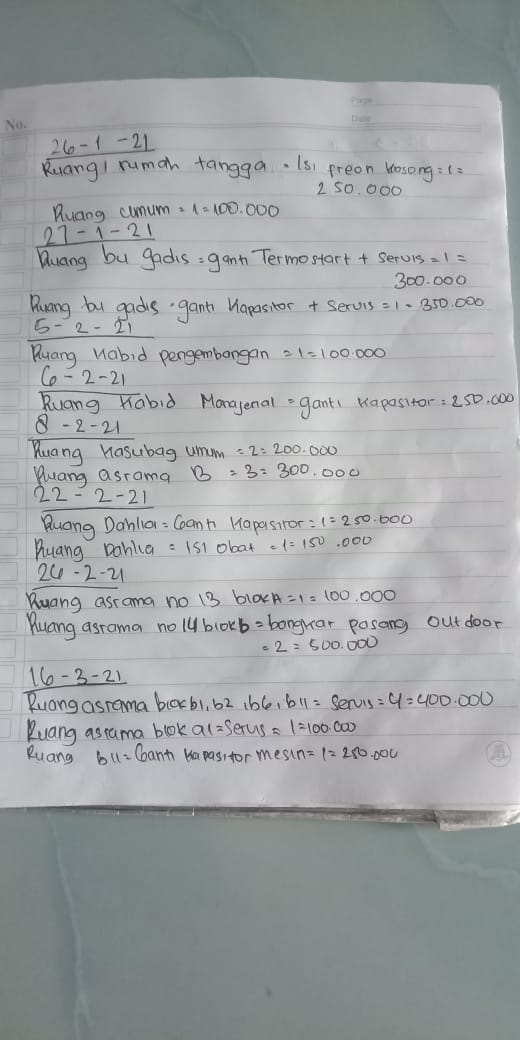 No.
Page
Date
26-1-21
Ruang rumah tangga = Isi preon kosong = 1 =
250.000
Ruang umum = 1 = 100.000
27-1-21
Ruang bu gadis = ganti Termostart + Servis = 1 =
300.000
Ruang bu gadis = ganti Kapasitor + Servis = 1 = 350.000
5-2-21
Ruang Kabid pengembangan = 1 = 100.000
6-2-21
Ruang Kabid Manajerial = ganti Kapasitor = 250.000
8-2-21
Ruang Kasubag umum = 2 = 200.000
Ruang asrama B = 3 = 300.000
22-2-21
Ruang Dahlia = Ganti Kapasitor = 1 = 250.000
Ruang Dahlia = ISI Obat = 1 = 150.000
26-2-21
Ruang asrama no 13 blok A = 1 = 100.000
Ruang asrama no 14 blok b = bongkar pasang Out door
= 2 = 500.000
16-3-21
Ruang asrama blok b1, b2, b6, b11 = Servis = 4 = 400.000
Ruang asrama blok a1 = Servis = 1 = 100.000
Ruang b11 = Ganti Kapasitor mesin = 1 = 250.000